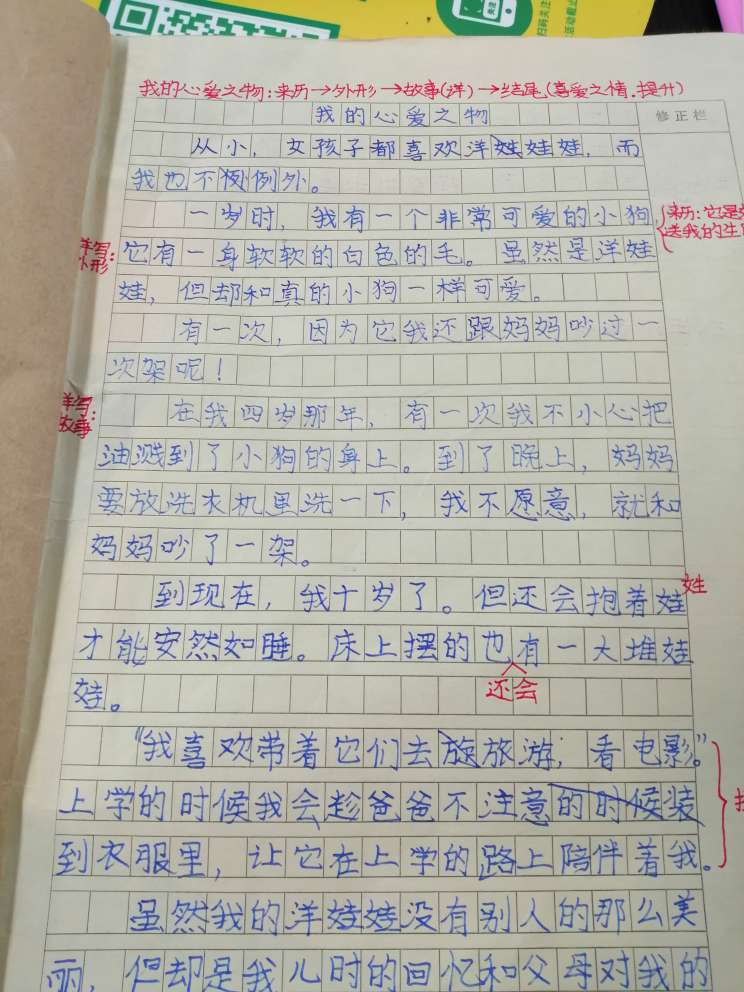 我的心爱之物:来历→外形→故事(详)→结尾(喜爱之情.提升)
我的心爱之物
修正栏
从小,女孩子都喜欢洋娃娃,而
我也不例外。
一岁时,我有一个非常可爱的小狗,
来历:它是
送我的生
详写:
外形
它有一身软软的白色的毛。虽然是洋娃
娃,但却和真的小狗一样可爱。
有一次,因为它我还跟妈妈吵过一
次架呢!
详写:
故事
在我四岁那年,有一次我不小心把
油溅到了小狗的身上。到了晚上,妈妈
要放洗衣机里洗一下,我不愿意,就和
妈妈吵了一架。
到现在,我十岁了。但还会抱着娃
才能安然如睡。床上摆的也有一大堆娃
还会
娃。
“我喜欢带着它们去旅游,看电影。”
上学的时候我会趁爸爸不注意装
到衣服里,让它在上学的路上陪伴着我。
虽然我的洋娃娃没有别人的那么美
丽,但却是我儿时的回忆和父母对我的